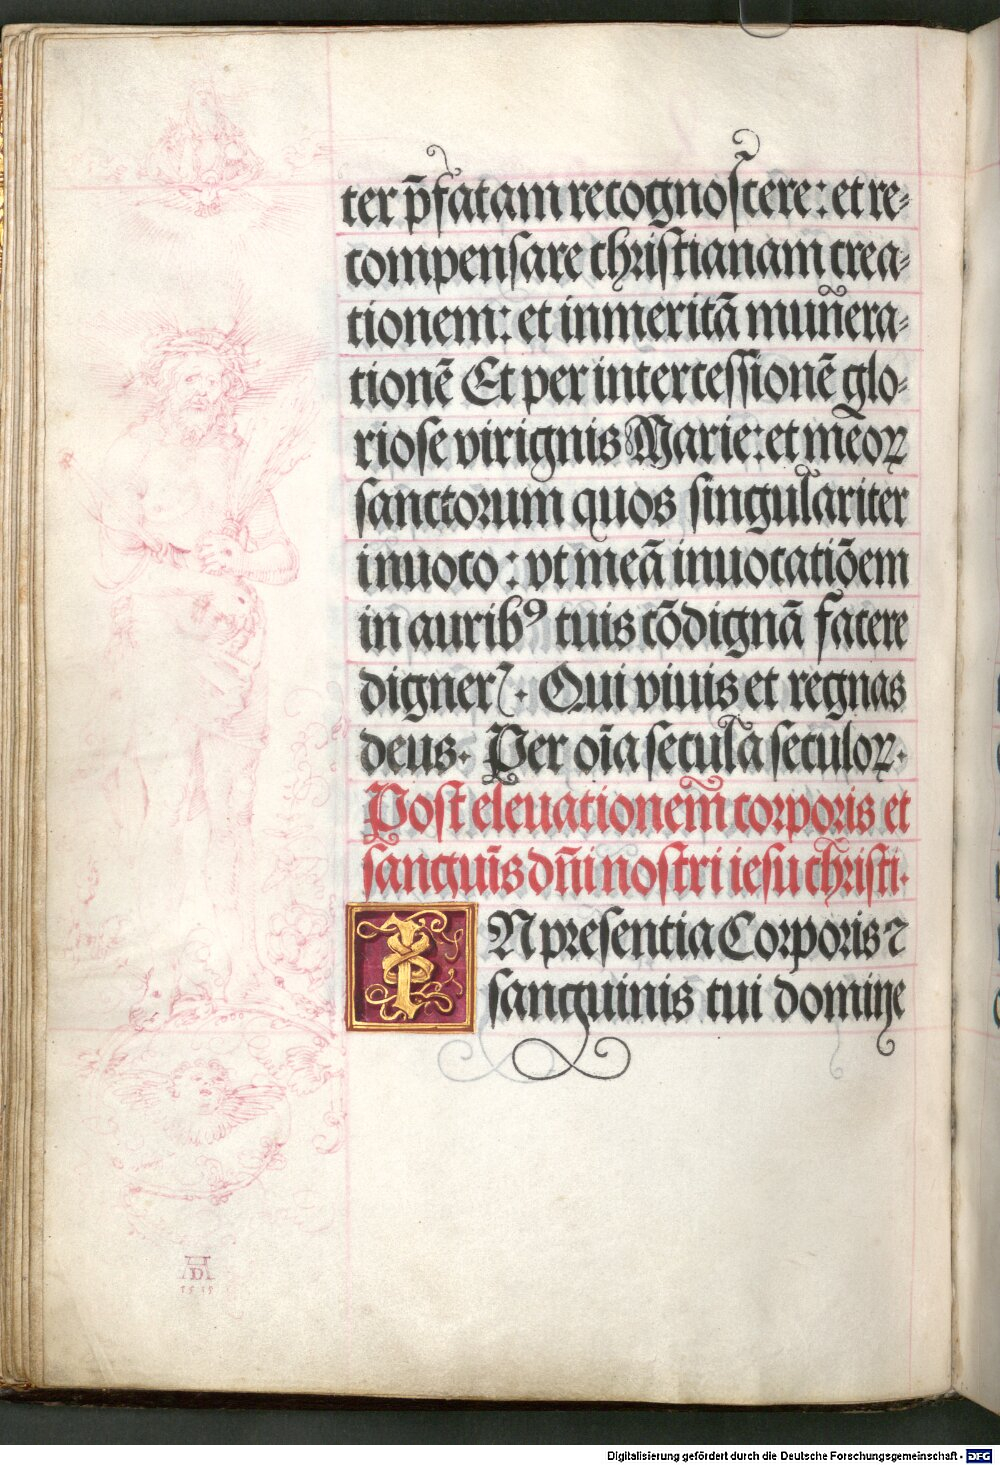 ter p̄fatam recognoſcere: et re⸗
compenſare chriſtianam crea⸗
tionem: et inmeritā muñera⸗
tionē Et per interceſſionē glo⸗
rioſe virignis Marie: et m̄eoꝝ
ſanctorum quos ſingulariter
inuoco : vt meā inuocatiōem
in aurib⁹ tuis cōdignā facere
digner̄. Qui viuis et regnas
deus. Per oīa ſecula ſeculoꝝ.
Poſt eleuationem̄ corporis et
ſanguīs dn̄i noſtri ieſu chriſti.
IN preſentia Corporis ⁊
ſanguinis tui domine
AD
1515
Digitalisierung gefördert durch die Deutsche Forschungsgemeinschaft - DFG